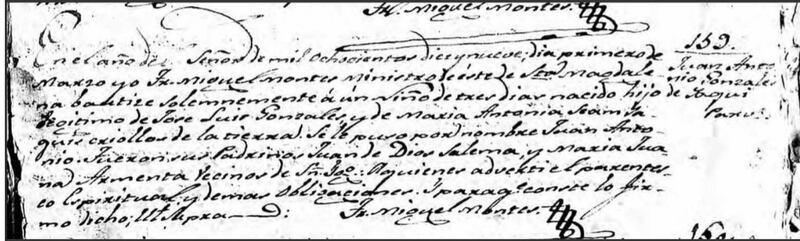 Fr. Miguel Montes.
En el año del Señor de mil ochocientos diez y nueve, dia primero de
Marzo yo Fr. Miguel Montes Ministro de este de Sta. Magdale
na bautize solemnemente á ún Niño de tres dias nacido hijo
legitimo de Jose Luis Gonzales, y de Maria Antonia
criollos de la tierra. Se le puso por nombre Juan Anto
nio. Fueron sus Padrinos Juan de Dios Salema y Maria Jua
na Armenta Vecinos de Sn. Ygo: A quienes adverti el parentes
co Espiritual, y demas Obligaciones. Y para qe conste lo fir
mo dicho, Ut Supra
Fr. Miguel Montes.
159
Juan Anto
nio Gonzales
de Yaqui
Parv.